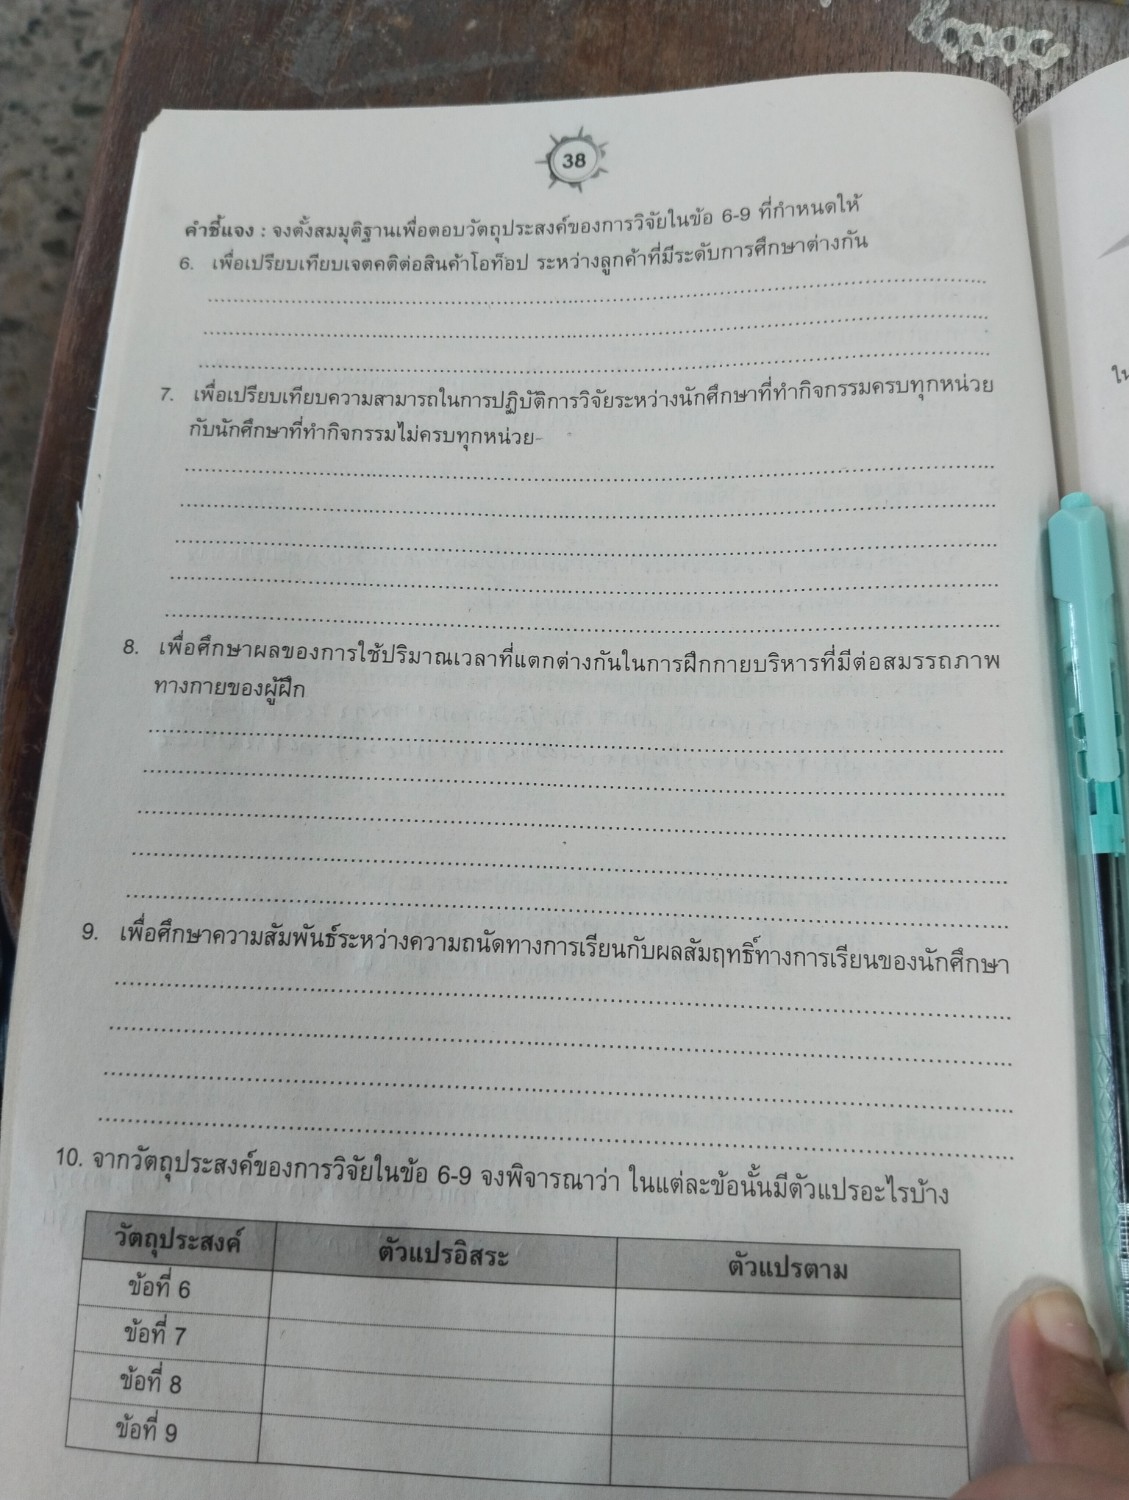 38
คำชี้แจง : จงตั้งสมมุติฐานเพื่อตอบวัตถุประสงค์ของการวิจัยในข้อ 6-9 ที่กำหนดให้
6. เพื่อเปรียบเทียบเจตคติต่อสินค้าโอท็อป ระหว่างลูกค้าที่มีระดับการศึกษาต่างกัน
7. เพื่อเปรียบเทียบความสามารถในการปฏิบัติการวิจัยระหว่างนักศึกษาที่ทำกิจกรรมครบทุกหน่วย
กับนักศึกษาที่ทำกิจกรรมไม่ครบทุกหน่วย
8. เพื่อศึกษาผลของการใช้ปริมาณเวลาที่แตกต่างกันในการฝึกกายบริหารที่มีต่อสมรรถภาพ
ทางกายของผู้ฝึก
9. เพื่อศึกษาความสัมพันธ์ระหว่างความถนัดทางการเรียนกับผลสัมฤทธิ์ทางการเรียนของนักศึกษา
10. จากวัตถุประสงค์ของการวิจัยในข้อ 6-9 จงพิจารณาว่า ในแต่ละข้อนั้นมีตัวแปรอะไรบ้าง
วัตถุประสงค์ ตัวแปรอิสระ ตัวแปรตาม
ข้อที่ 6
ข้อที่ 7
ข้อที่ 8
ข้อที่ 9